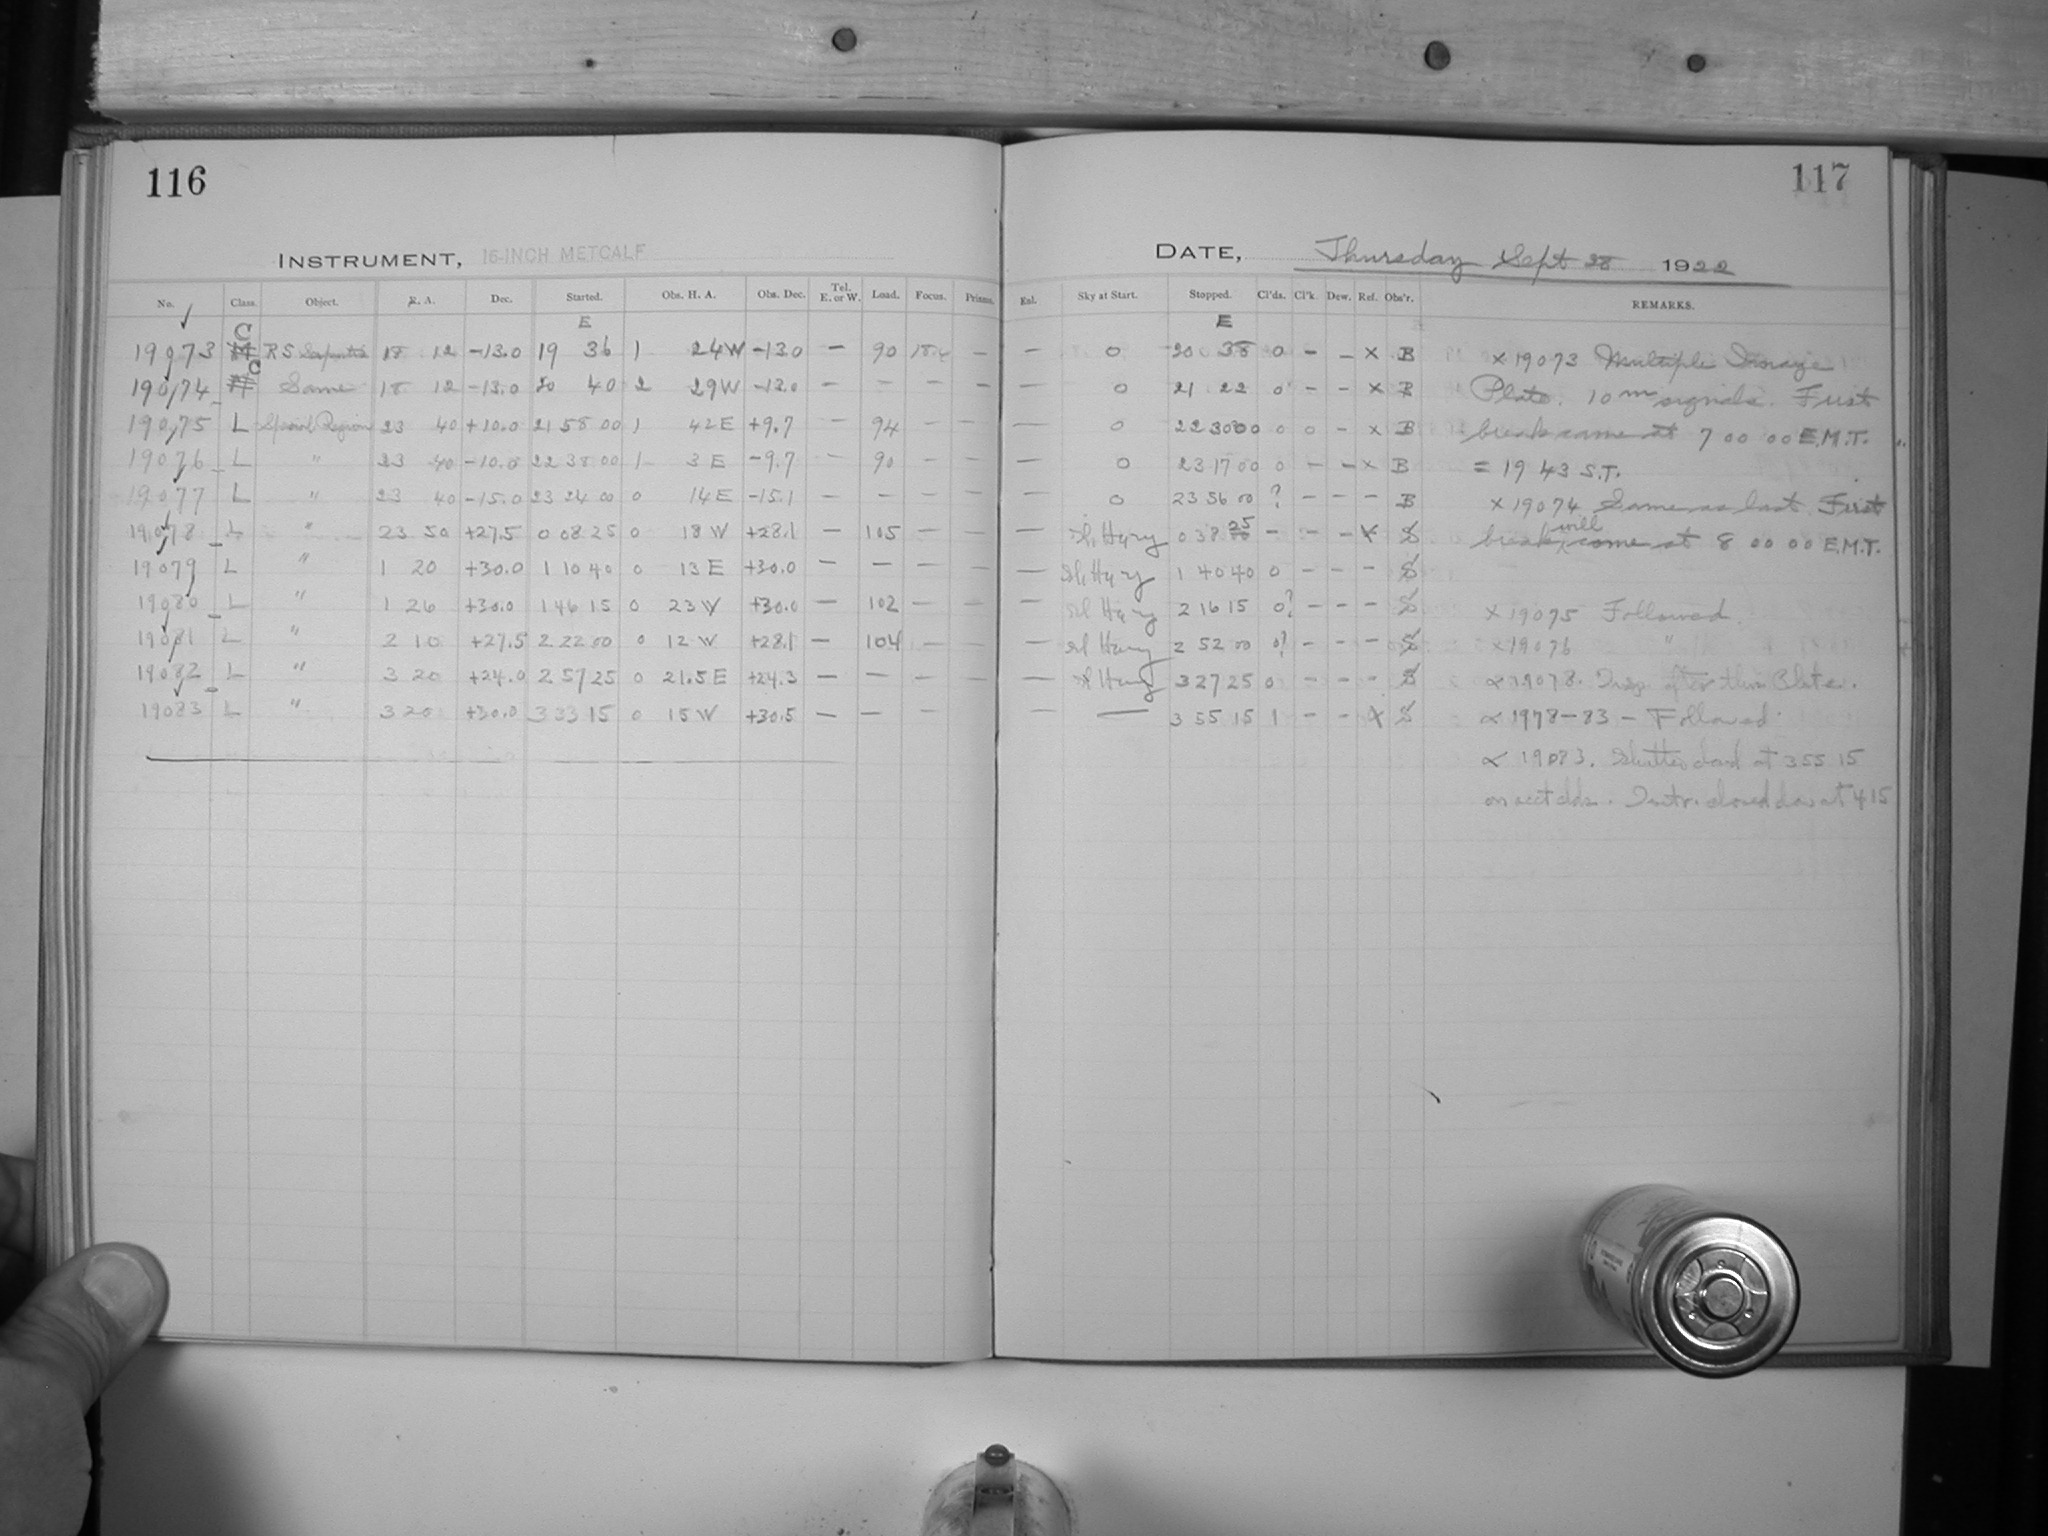 116
INSTRUMENT, 16-INCH METCALF
No. Class. Object. R. A. Dec. Started. Obs. H. A. Obs. Dec. Tel. E. or W. Load. Focus. Prisms.
E
19073 C RS Serpentis 18 12 -13.0 19 36 1 24W -13.0 — 90 18.6 —
19074 C Same 18 12 -13.0 20 40 2 29W -13.0 — — — —
19075 L Special Region 23 40 +10.0 21 58 00 1 42E +9.7 — 94 — —
19076 L " 23 40 -10.0 22 38 00 1 3E -9.7 — 90 — —
19077 L " 23 40 -15.0 23 24 00 0 14E -15.1 — — — —
19078 L " 23 50 +27.5 0 08 25 0 18W +28.1 — 105 — —
19079 L " 1 20 +30.0 1 10 40 0 13E +30.0 — — — —
19080 L " 1 26 +30.0 1 46 15 0 23W +30.0 — 102 — —
19081 L " 2 10 +27.5 2 22 00 0 12W +28.1 — 104 — —
19082 L " 3 20 +24.0 2 57 25 0 21.5E +24.3 — — — —
19083 L " 3 20 +30.0 3 33 15 0 15W +30.5 — — — —
117
DATE, Thursday Sept 28 1922
Exl. Sky at Start. Stopped. Cl'ds. Cl'k. Dew. Ref. Obs'r. REMARKS.
E
— 0 20 38 0 — — x B x 19073 Multiple Image
0 21 22 0 — — x B Plate. 10m signals. First
— 0 22 30 00 0 0 — x B break came at 7 00 00 E.M.T.
— 0 23 17 00 0 — — x B = 19 43 S.T.
— 0 23 56 00 ? — — — B x 19074 Same as last. First
— Sl. Hazy 0 38 25 — — — x S break will come at 8 00 00 E.M.T.
— Sl. Hazy 1 40 40 0 — — — S
— Sl Hazy 2 16 15 0? — — — S x 19075 Followed.
— Sl Hazy 2 52 00 0? — — — S x 19076 "
— Sl Hazy 3 27 25 0 — — — S x 19078. Insp. after this Plate.
— — 3 55 15 1 — — x S x 1978-83 - Followed.
x 19083. Shutter closed at 3 55 15
on acct clds. Instr. closed down at 4 15